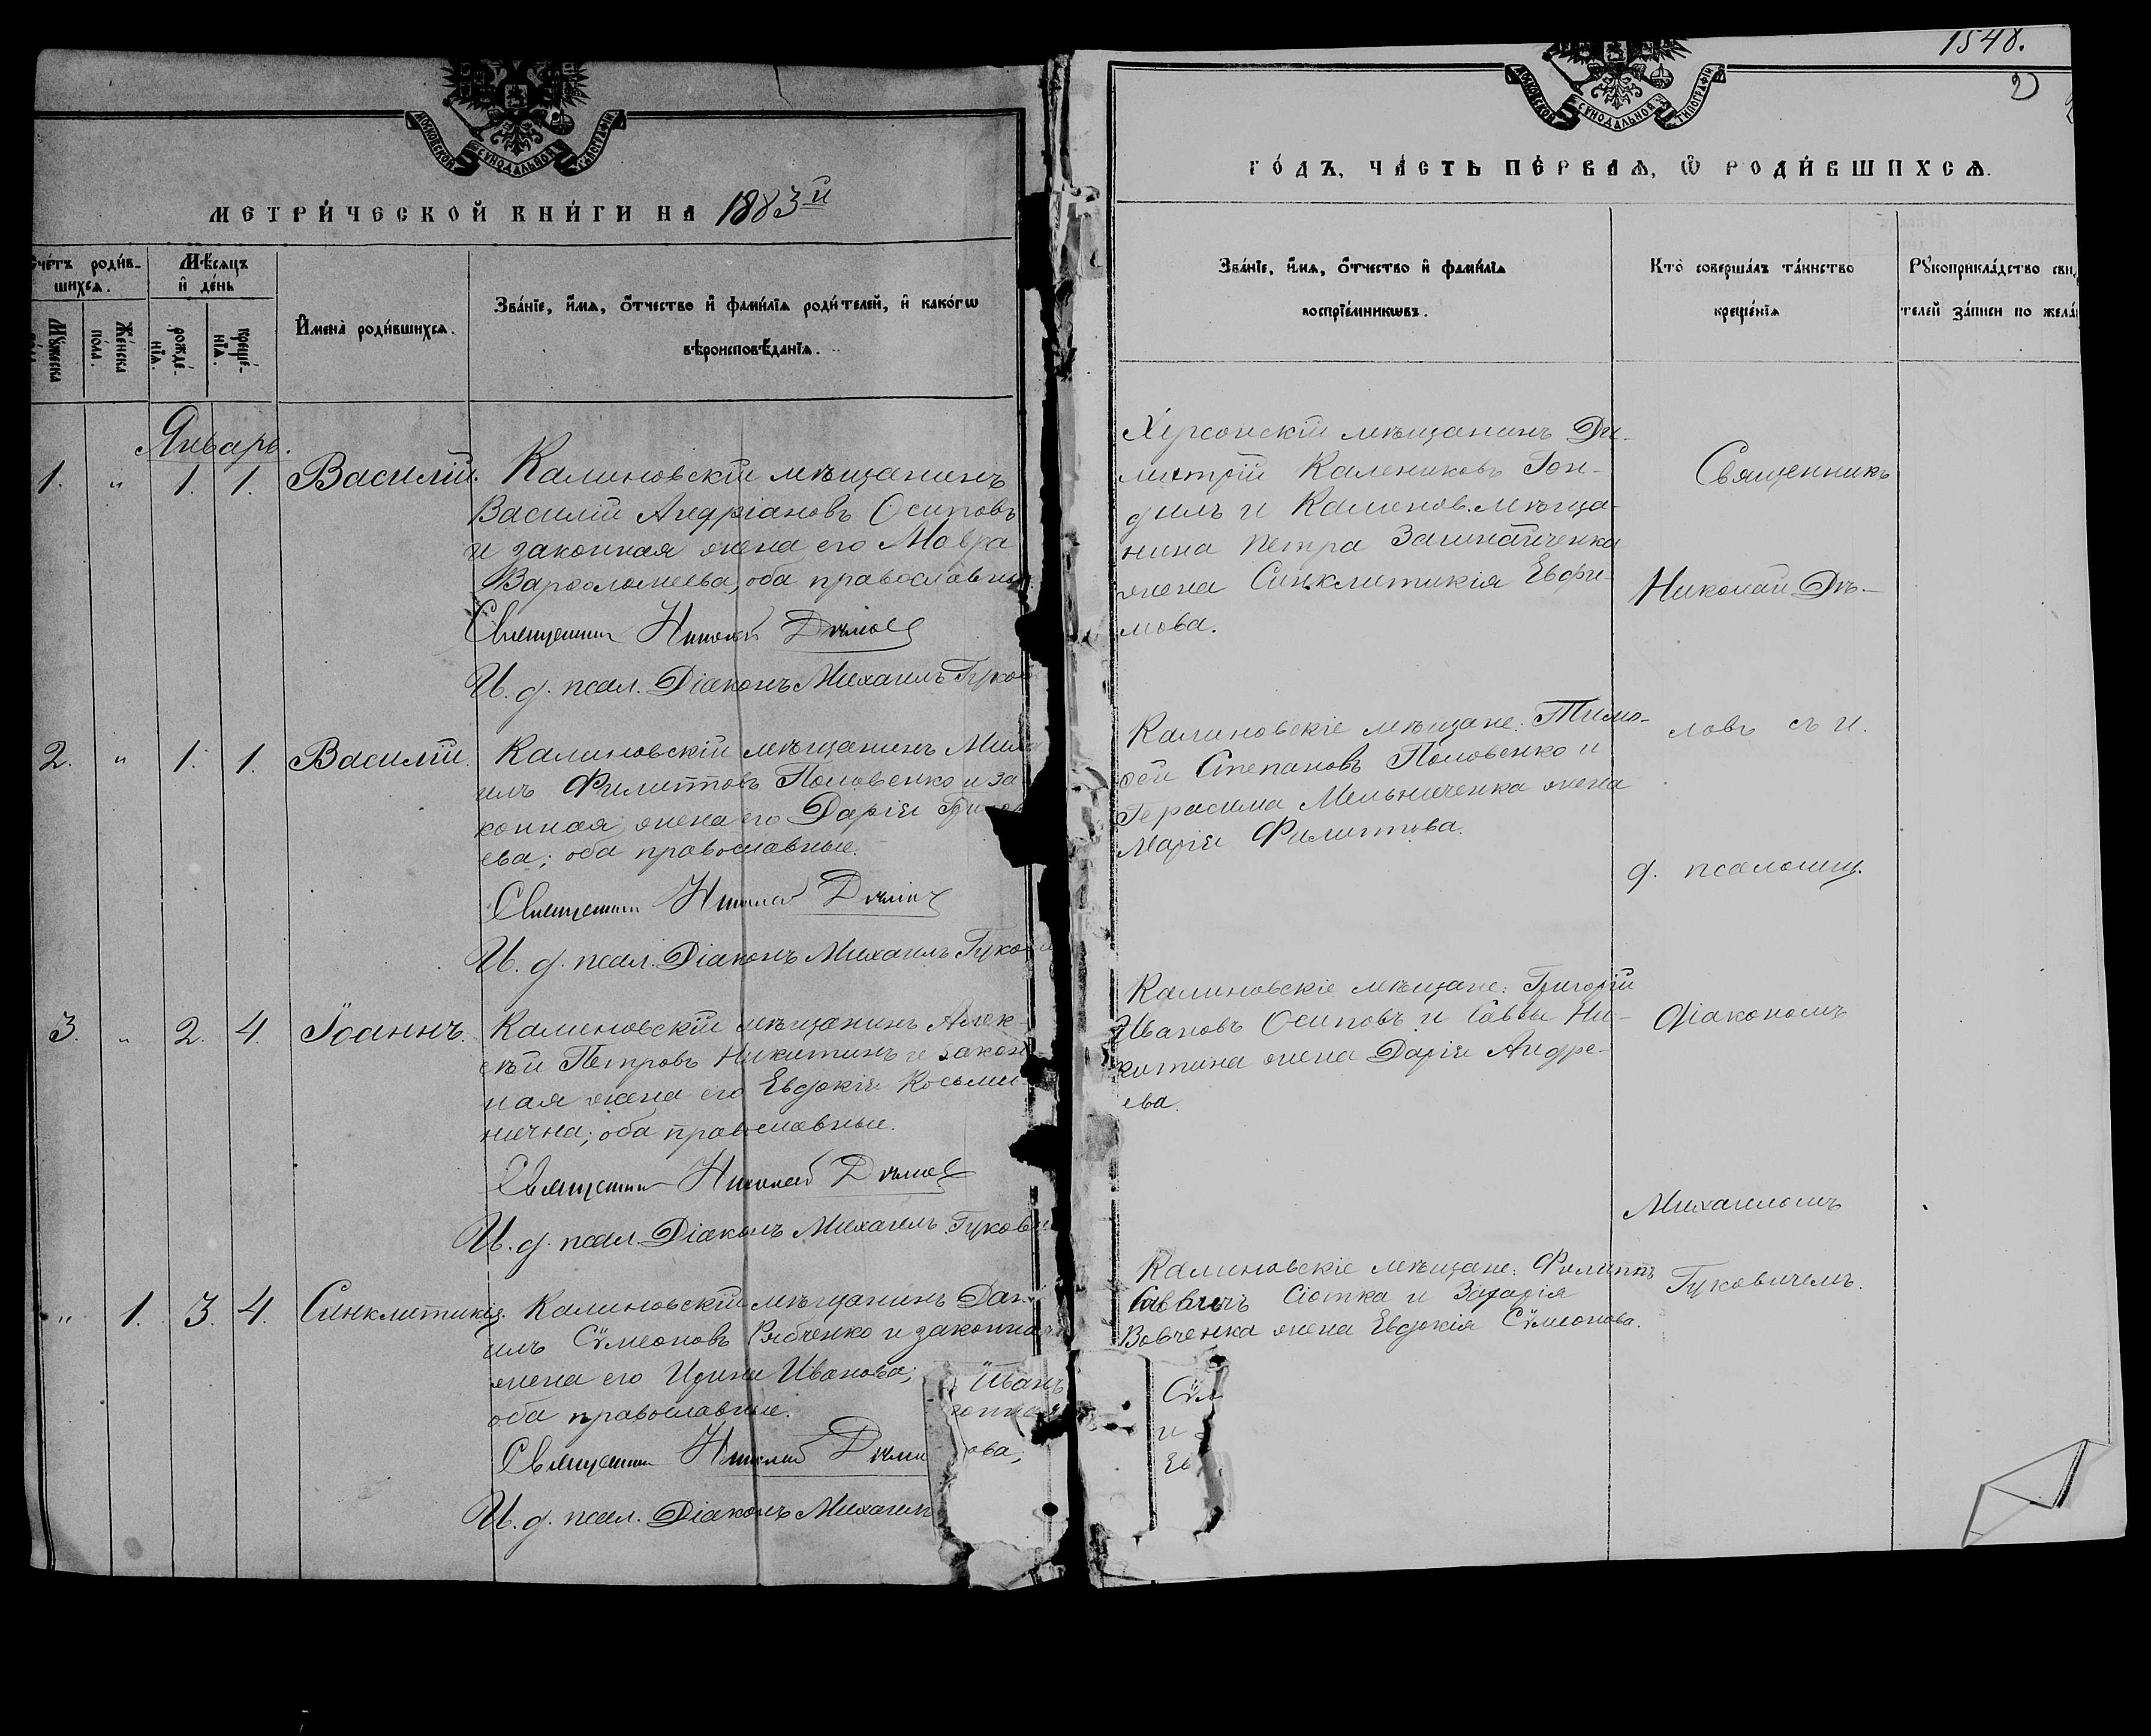 МОСКОВСКОЙ СѴНОДАЛЬНОЙ ТИПОГРАФІИ
МЕТРИ́ЧЕСКОЙ КНИ́ГИ НА 1883й
Счетъ роди́в-
шихсѧ.
Мꙋжеска
пола.
Же́нска
пола.
Мѣ́сяцъ
и҆ де́нь
рожде́-
нїѧ.
креще́-
нїѧ.
И҆мена̀ роди́вшихсѧ.
Зва́нїе, и҆́мѧ, ѻ҆́тчество и҆ фами́лїѧ роди́телей, и҆ како́гѡ
вѣроисповѣ́данїѧ.
Январь.
1. " 1. 1. Василій. Калиновскій мѣщанинъ
Василій Андріановъ Осиповъ
и законная жена его Мавра
Варѳоломеева, оба православные.
Священникъ Николай Дѣмовъ
И. д. псал. Діаконъ Михаилъ Гуков
2. " 1. 1. Василій. Калиновскій мѣщанинъ Миха
илъ Филипповъ Половенко и за-
конная жена его Дарія
ева; оба православные.
Священникъ Николай Дѣмовъ
И. д. псал. Діаконъ Михаилъ Гуков
3. " 2. 4. Іоаннъ. Калиновскій мѣщанинъ Алек-
сѣй Петровъ Никитинъ и закон
ная жена его Евдокія Косьми-
нична; оба православные.
Священникъ Николай Дѣмовъ
И. д. псал. Діаконъ Михаилъ Гукови
" 1. 3. 4. Синклитикія. Калиновскій мѣщанинъ Дан
илъ Сѵмеоновъ Рябченко и законная
жена его Ирина Иванова;
оба православные.
Священникъ Николай Дѣмо
И. д. псал. Діаконъ Михаилъ
Иванъ
ова;
1548.
2
МОСКОВСКОЙ СѴНОДАЛЬНОЙ ТИПОГРАФІИ
ГО́ДЪ, ЧА́СТЬ ПЕ́РВАѦ, Ѡ҆ РОДИ́ВШИХСѦ.
Зва́нїе, и҆́мѧ, ѻ҆́тчество и҆ фами́лїѧ
воспрїе́мникѡвъ.
Кто̀ соверша́лъ та́инство
креще́нїѧ
Рꙋкоприкла́дство сви
телей за́писи по жела
Херсонскій мѣщанинъ Ди-
митрій Калениковъ Гон-
дилъ и Калинов. мѣща-
нина Петра
жена Синклитикія Евфи-
мова.
Священникъ
Николай Дѣ-
Калиновскіе мѣщане: Тимо-
ѳей Степановъ Половенко и
Герасима Мельниченка жена
Марія Филиппова.
мовъ съ и.
д. псаломщ.
Калиновскіе мѣщане: Григорій
Ивановъ Осиповъ и Саввы Ни-
китина жена Дарія Андре-
ева.
діакономъ
Михаиломъ
Калиновскіе мѣщане: Филиппъ
Саввичъ Сіотка и Захарія
Вовченка жена Евдокія Сѵмеонова.
Гуковичемъ.
Сѵм
и
Ев